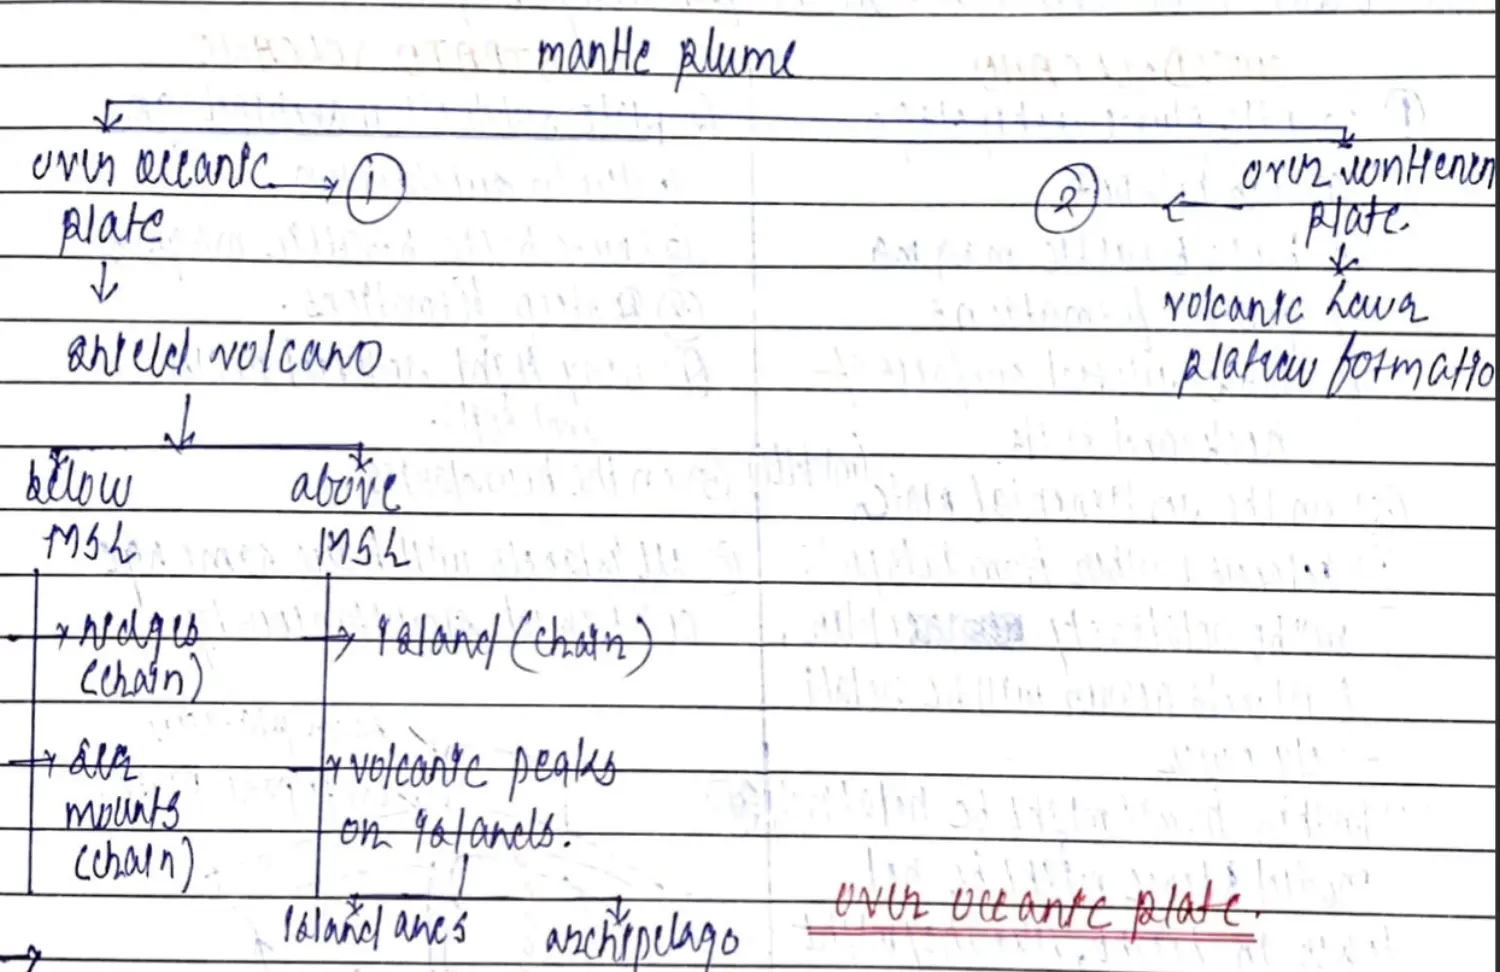 mantle plume
over oceanic
plate
①
②
over continen
plate.
volcanic lava
plateau formatio
shield volcano
below
MSL
above
MSL
ridges
(chain)
island (chain)
sea
mounts
(chain)
volcanic peaks
on islands.
island arcs
archipelago
over oceanic plate.